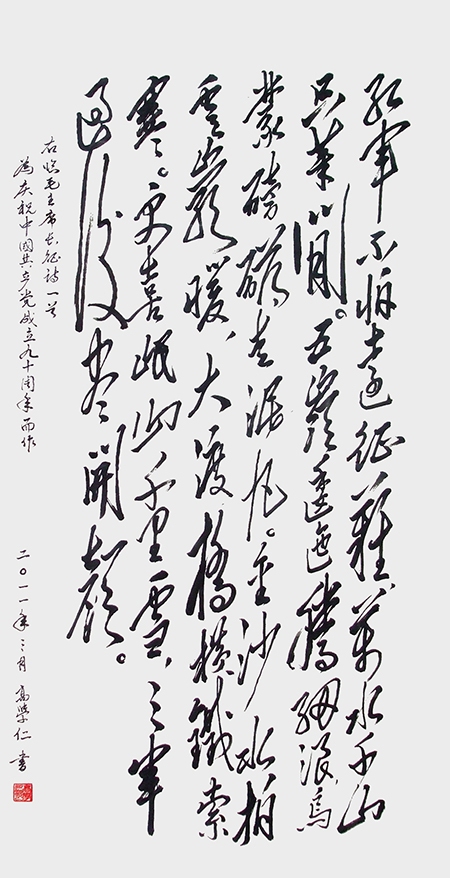 红军不怕远征难，萬水千山
只等閒。五嶺逶迤腾细浪，烏
蒙磅礴走泥丸。金沙水拍
雲崖暖，大渡橋横鐵索
寒。更喜岷山千里雪，三军
過後尽開颜。
右临毛主席长征诗一首
為庆祝中國共产党成立九十周年而作
二〇一一年三月 高 仁 書